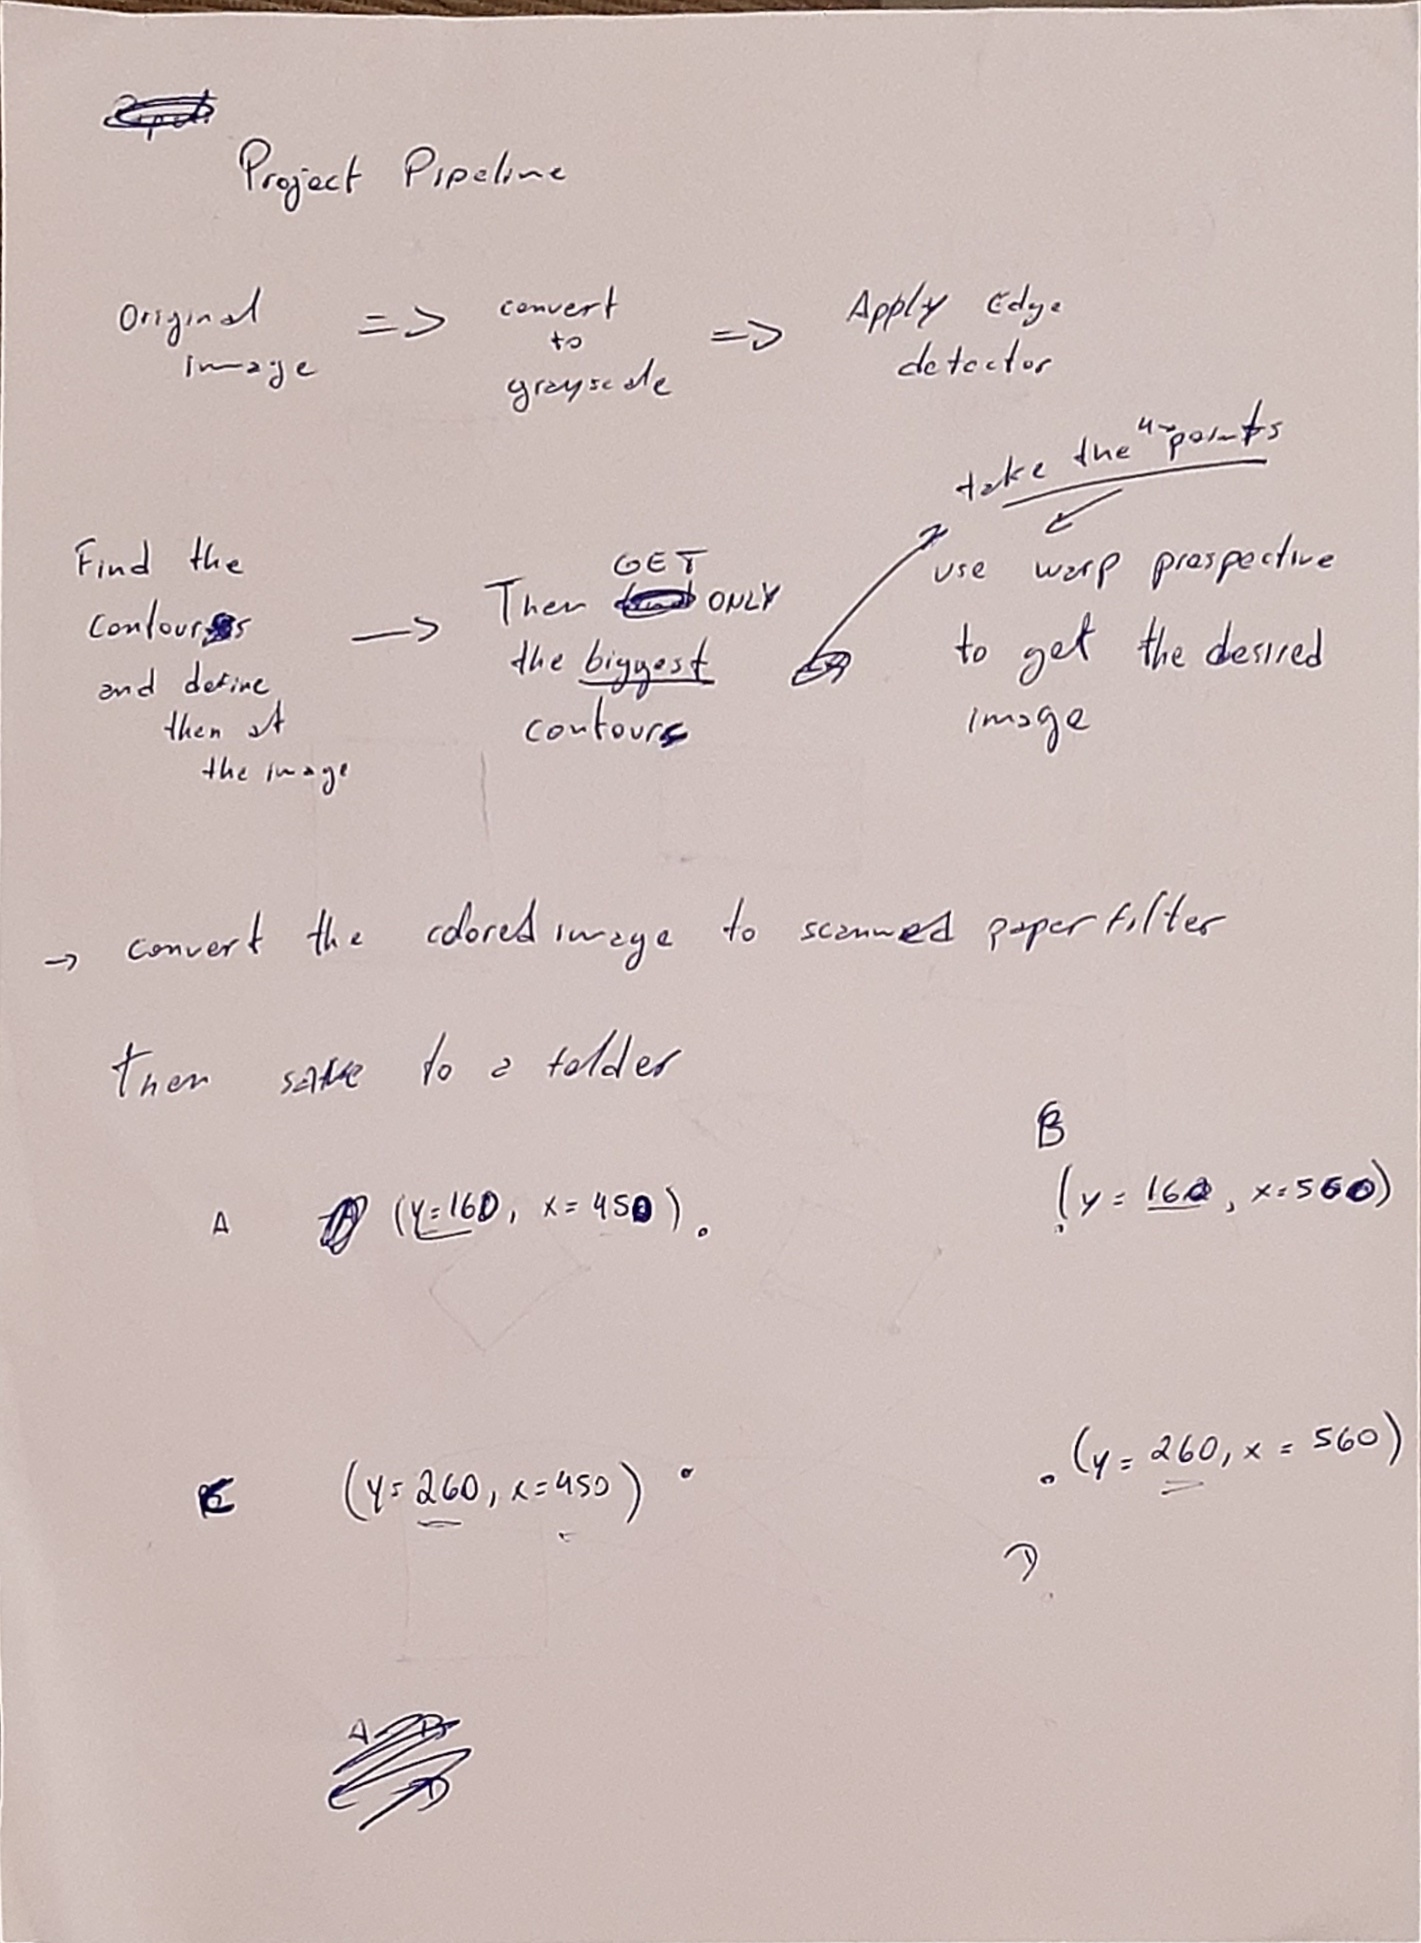 Project Pipeline
Original
image
=>
convert
to
grayscale
=>
Apply Edge
detector
Find the
contours
and define
then at
the image
→
GET
Then ONLY
the biggest
contours
take the 4 points
use warp prespective
to get the desired
image
→ convert the colored image to scanned paper filter
then save to a folder
A (y=160, x=450).
B
(y=160, x=560)
C (y=260, x=450)
(y=260, x=560)
D